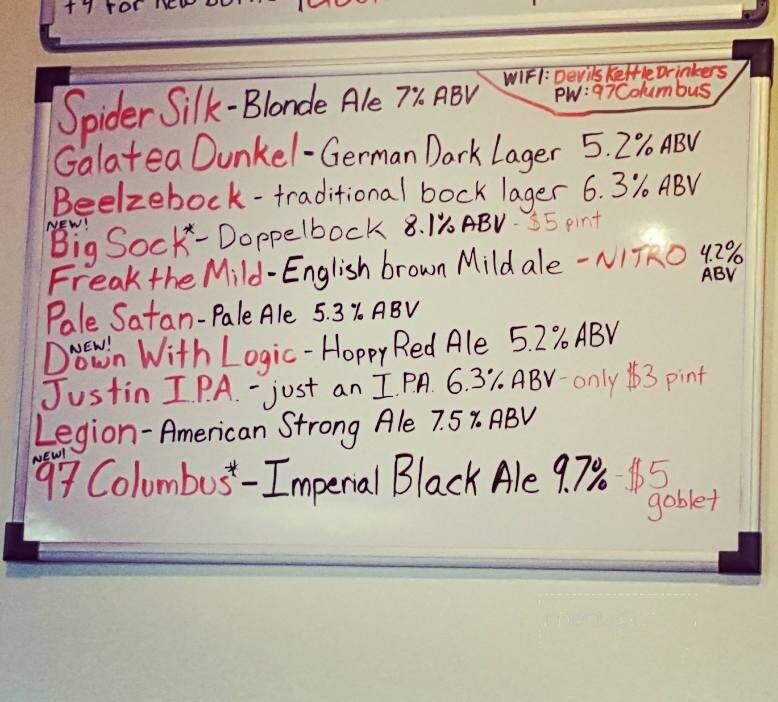 +4 for new
WIFI: Devils Kettle Drinkers
PW: 97Columbus
Spider Silk - Blonde Ale 7% ABV
Galatea Dunkel - German Dark Lager 5.2% ABV
Beelzebock - traditional bock lager 6.3% ABV
NEW!
Big Sock* - Doppelbock 8.1% ABV - $5 pint
Freak the Mild - English brown Mild ale - NITRO 4.2% ABV
Pale Satan - Pale Ale 5.3% ABV
NEW!
Down With Logic - Hoppy Red Ale 5.2% ABV
Justin I.P.A. - just an I.P.A. 6.3% ABV - only $3 pint
Legion - American Strong Ale 7.5% ABV
NEW!
97 Columbus* - Imperial Black Ale 9.7% - $5 goblet